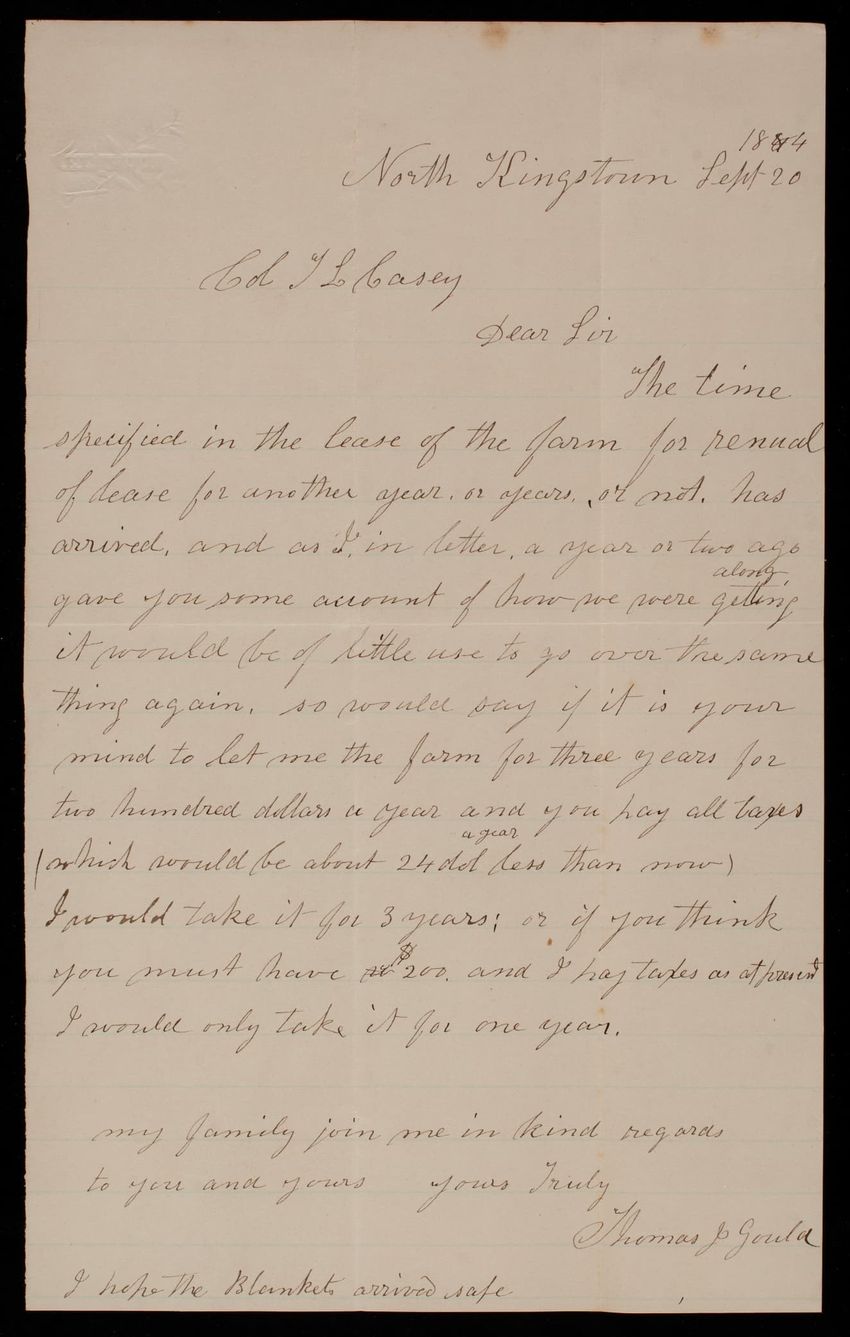 1884
North Kingstown Sept 20
Col T L Casey
Dear Sir
The time
specified in the lease of the farm for renual
of lease for another year, or years, or not. has
arrived, and as I, in letter, a year or two ago
along
gave you some account of how we were getting
it would be of little use to go over the same
thing again. so would say if it is your
mind to let me the farm for three years for
two hundred dollars a year and you pay all taxes
a year
(which would be about 24 dol less than now)
I would take it for 3 years; or if you think
you must have $200. and I pay taxes as at present
I would only take it for one year.
my family join me in kind regards
to you and yours yours Truly
Thomas J Gould
I hope the Blankets arrived safe